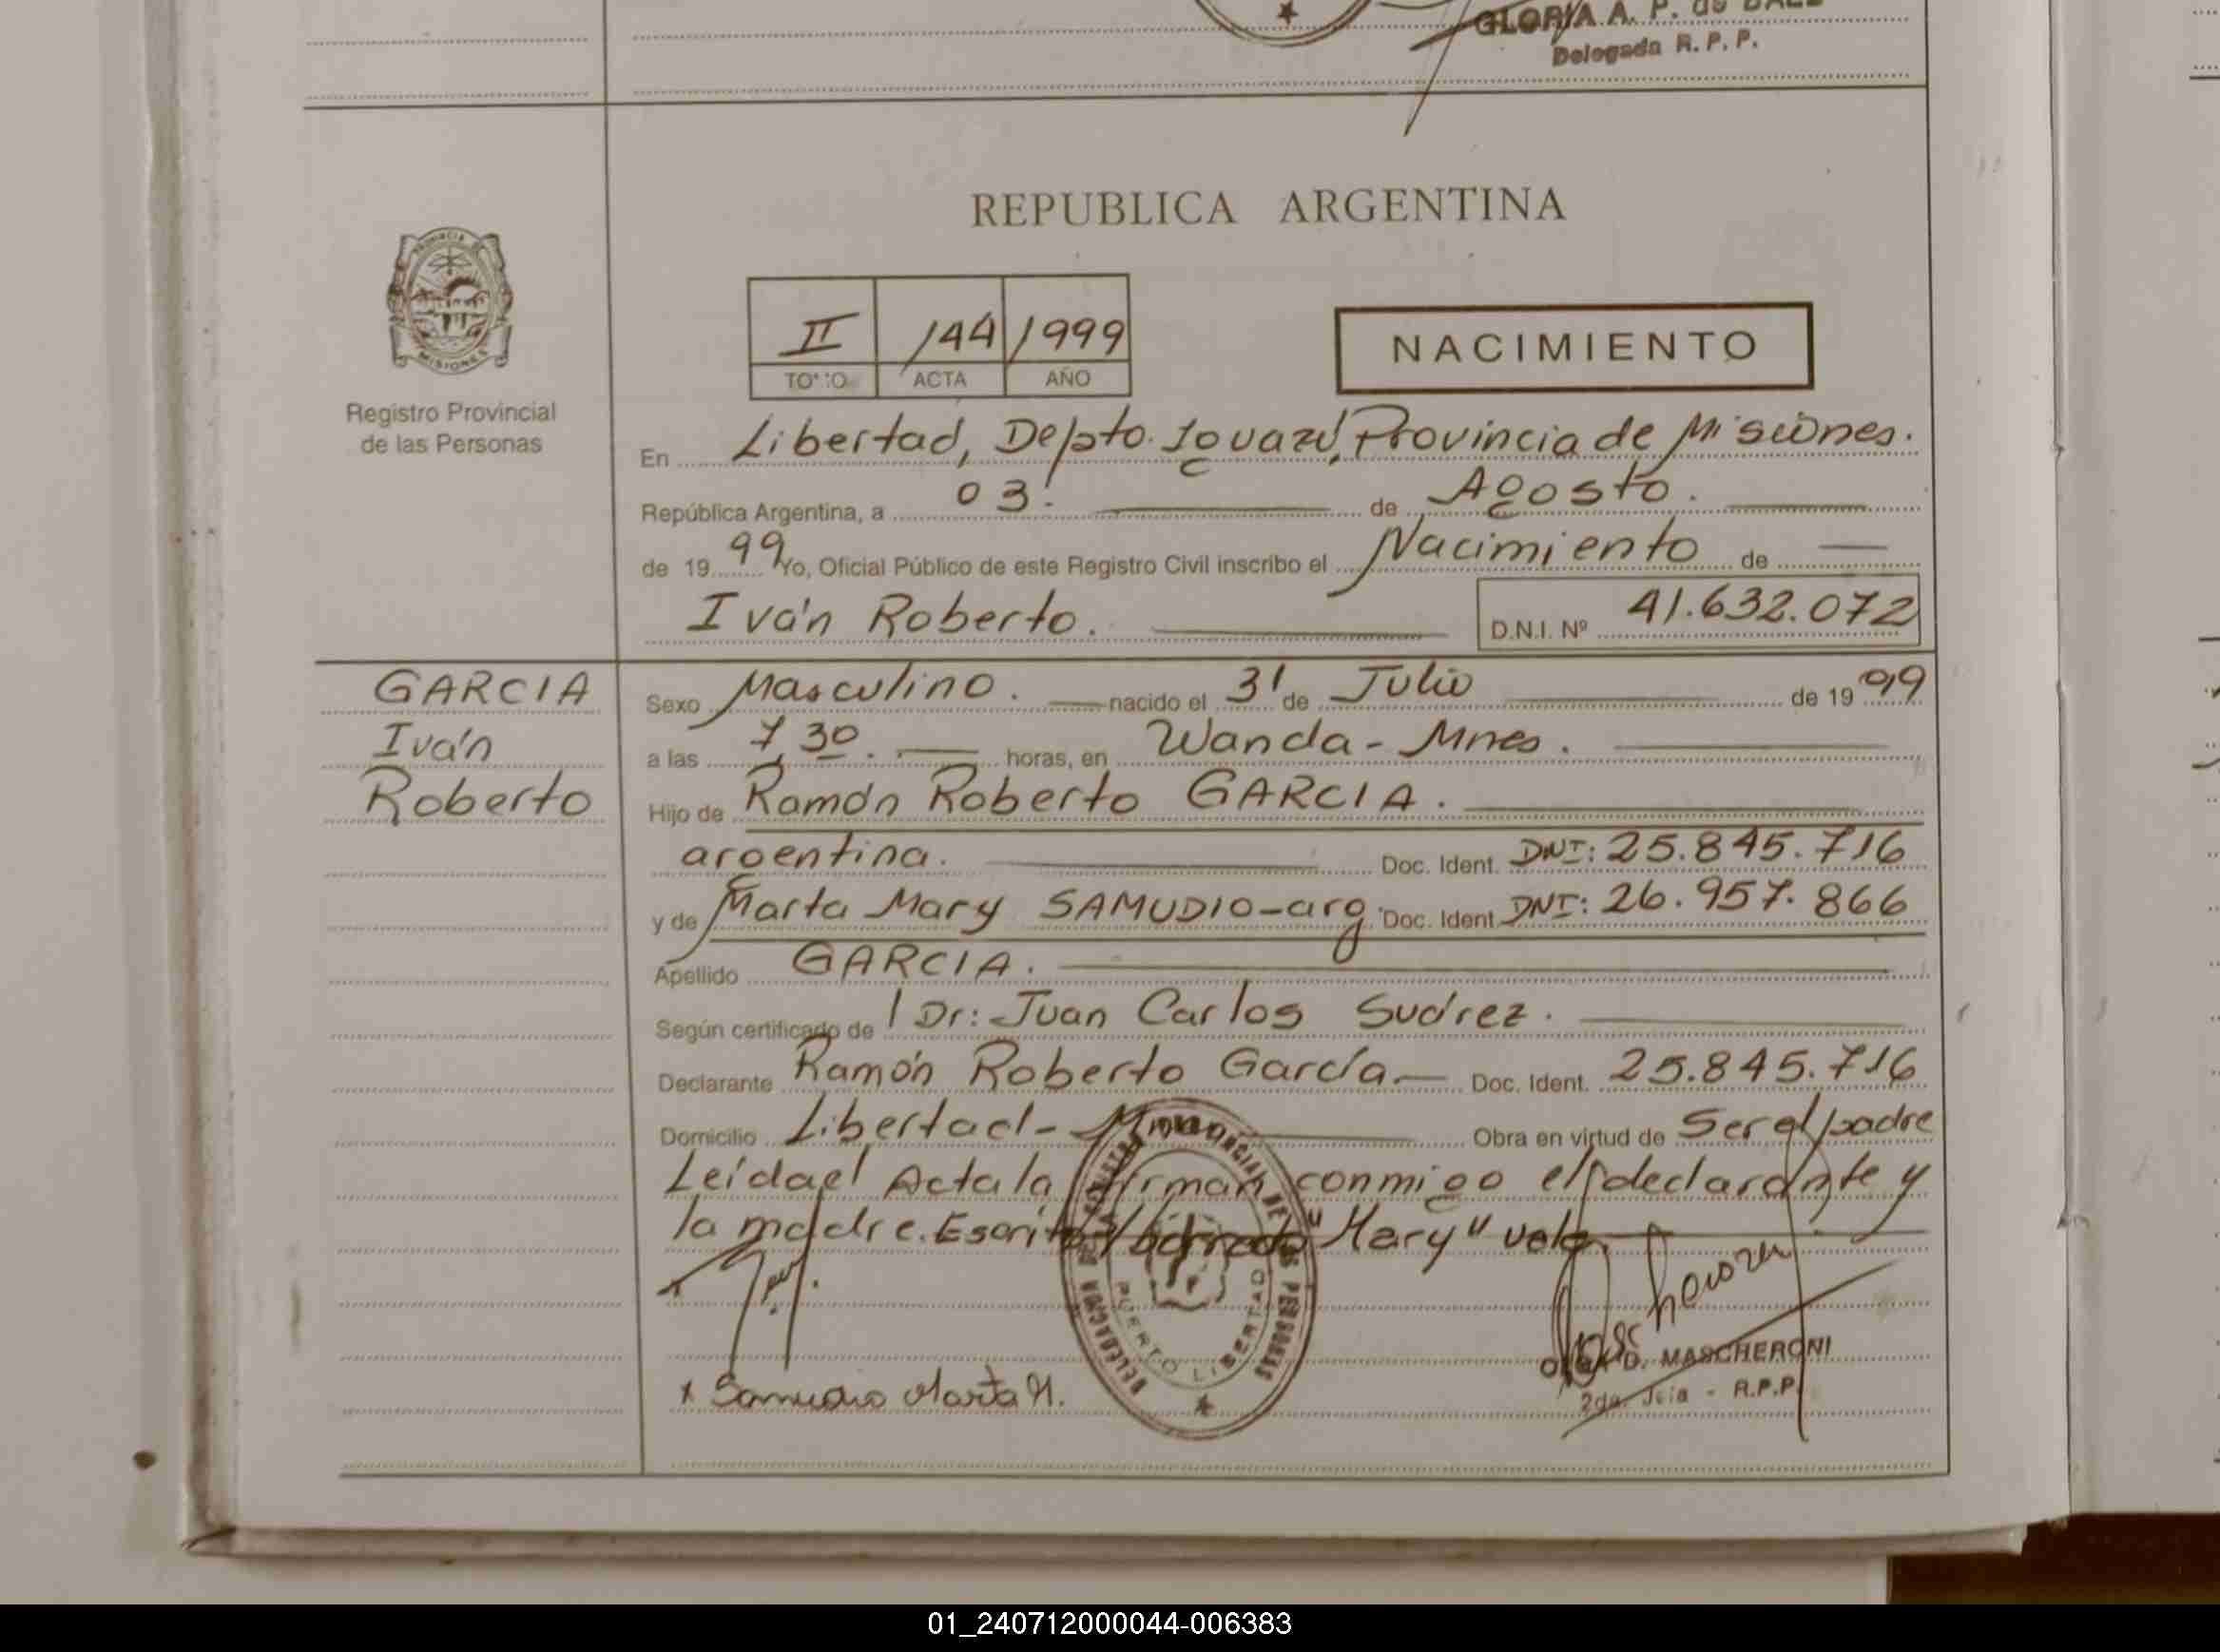 GLORIA A. P. de
Delegada R. P. P.
REPUBLICA ARGENTINA
PROVINCIA DE
MISIONES
Registro Provincial
de las Personas
II 144 1999
TOMO ACTA AÑO
NACIMIENTO
En Libertad, Depto. Iguazú, Provincia de Misiones.
República Argentina, a 03. de Agosto.
de 1999 Yo, Oficial Público de este Registro Civil inscribo el Nacimiento de
Iván Roberto. D.N.I. Nº 41.632.072
GARCIA
Iván
Roberto
Sexo Masculino. nacido el 31 de Julio de 1999
a las 7,30. horas, en Wanda - Mnes.
Hijo de Ramón Roberto GARCIA.
argentina. Doc. Ident. DNI: 25.845.716
y de Marta Mary SAMUDIO-arg. Doc. Ident. DNI: 26.957.866
Apellido GARCIA.
Según certificado de Dr: Juan Carlos Suárez.
Declarante Ramón Roberto García Doc. Ident. 25.845.716
Domicilio Libertad - Obra en virtud de Ser el padre
Leída el Acta la firman conmigo el declarante y
la madre. Escrito s/borrado "Mary" vale.
DELEGACION DE LAS PERSONAS
PUERTO LIBERTAD
x Samudio Marta M.
OLGA D. MASCHERONI
2da. Jefa - R.P.P.
01_240712000044-006383